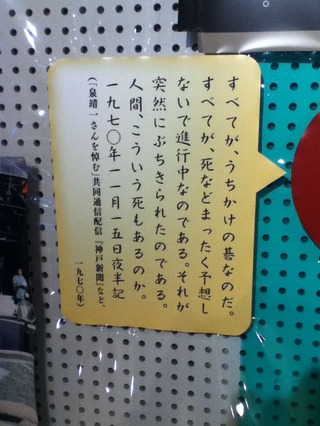 すべてがうちかけの碁なのだ。
すべてが、死などまったく予想し
ないで進行中なのである。それが
突然にぶちきられたのである。
人間、こういう死もあるのか。
一九七〇年一一月一五日夜半記
(「泉靖一さんを悼む」共同通信配信『神戸新聞』など、
一九七〇年)